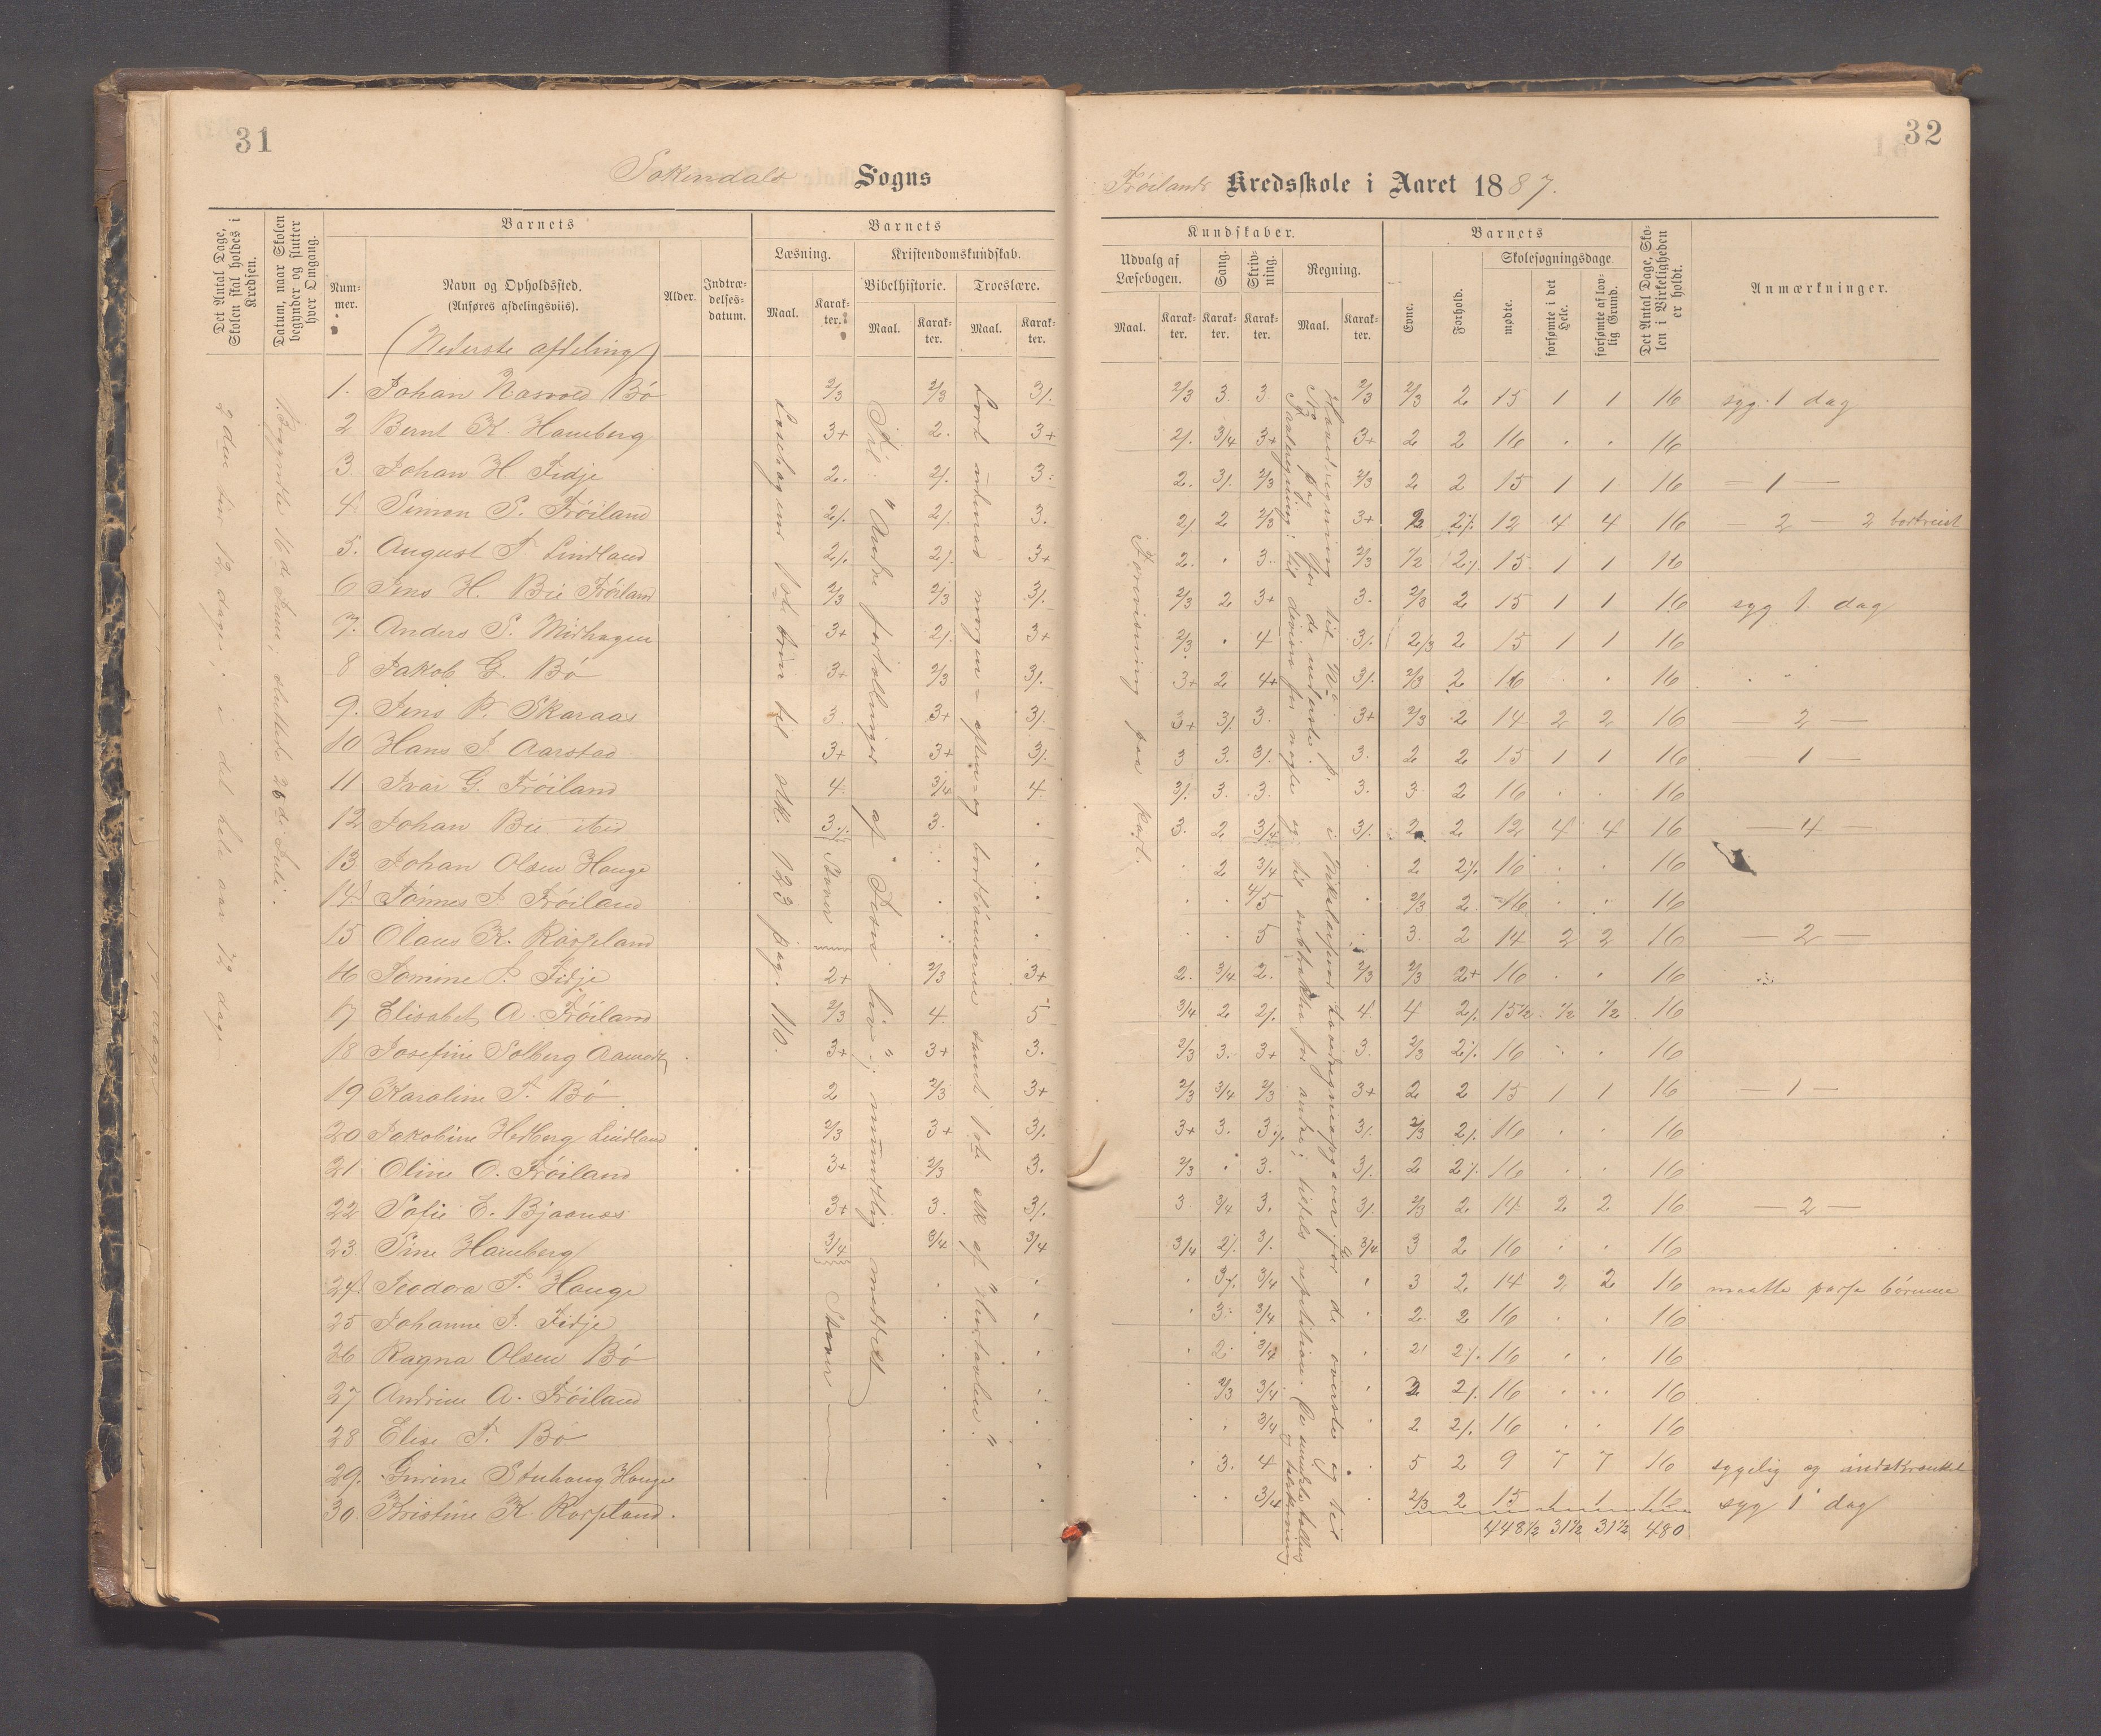 31
32
Sokendals Sogns
Frøilands Kredsskole i Aaret 1887.
Det Antal Dage, Skolen skal holdes i Kredsen.
Datum, naar Skolen begynder og slutter hver Omgang.
Barnets
Num-mer.
Navn og Opholdssted.
(Anføres afdelingsviis).
Alder.
Indtræ-delses-datum.
Barnets
Læsning.
Kristendomskundskab.
Bibelhistorie.
Troeslære.
Maal.
Karak-ter.
Maal.
Karak-ter.
Maal.
Karak-ter.
Kundskaber.
Udvalg af Læsebogen.
Sang.
Skriv-ning.
Regning.
Maal.
Karak-ter.
Karak-ter.
Karak-ter.
Maal.
Karak-ter.
Barnets
Evne.
Forhold.
Skolesøgningsdage
mødte.
forsømte i det Hele.
forsømte af lov-lig Grund.
Det Antal Dage, Sko-len i Virkeligheden er holdt.
Anmærkninger.
(Nederste afdeling)
2den 12 dage, i det hele aar 72 dage
1. Begyndte 16de Juni; sluttede 26de Juli.
til "Andre fortællinger af Jesu liv"; mundtlig meddelt
Lært udenad morgen- aften- og bordbønnerne samt 1ste stk af "Hustavlen."
Forevisning paa kart.
1. Johan Nasvold Bø 2/3 2/3 3/. 2/3 3. 3. 2/3 2/3 2 15 1 1 16 syg 1 dag
2 Bernt K. Hameberg 3+ 2. 3+ 2/. 3/4 3+ 3+ 2 2 16 . . 16
3 Johan H. Fidje 2. 2/. 3. 2. 3/. 2/3 2/3 2 2 15 1 1 16 — 1 —
4 Simon S. Frøiland 2/. 2/. 3. 2/. 2 2/3 3+ 2 2/. 12 4 4 16 — 2 — 2 bortreist
5. August T. Lindland 2/. 2/. 3+ 2. . 3. 2/3 1/2 2/. 15 1 1 16
6 Jens H. Bie Frøiland 2/3 2/3 3/. 2/3 2 3+ 3. 2/3 2 15 1 1 16 syg 1. dag
7. Anders S. Midhagen 3+ 2/. 3+ 2/3 . 4 3/. 2/3 2 15 1 1 16
8 Jakob G. Bø 3+ 2/3 3/. 3+ 2 4+ 3/. 2/3 2 16 . 16
9. Jens P. Skaraas 3. 3+ 3/. 3+ 3/. 3. 3+ 2/3 2 14 2 2 16 — 2 —
10 Hans J. Aarstad 3+ 3+ 3/. 3 3. 3/. 3. 2 2 15 1 1 16 — 1 —
11 Ivar G. Frøiland 4. 3/4 4. 3/. 3. 3. 3. 3. 2 16 . . 16
12 Johan Bie ibid 3./. 3. . 3. 2 3/4 3/. 2 2 12 4 4 16 — 4 —
13 Johan Olsen Hauge . . . 2 3/4 2 2/. 16 . . 16
14 Tønnes J. Frøiland . . . . 4/5 . 2/3 2 16 . . 16
15 Olaus K. Rørpland . . . . 5 . 3. 2 14 2 2 16 — 2 —
16 Jomine P. Fidje 2+ 2/3 3+ 2. 3/4 2. 2/3 2/3 2+ 16 . . 16
17 Elisabet A. Frøiland 2/3 4. 5 3/4 2 2/. 4. 4 2/. 15½ ½ ½ 16
18 Josefine Solberg Aamodt 3+ 3+ 3. 2/3 3. 3+ 3. 2/3 2/. 16 . . 16
19 Karoline T. Bø 2 2/3 3+ 2/3 3/4 2/3 3+ 2 2 15 1 1 16 — 1 —
20 Jakobine Hedberg Lindland 2/3 3+ 3/. 3+ 3. 3/. 3/. 2/3 2/. 16 . . 16
21 Oline O. Frøiland 3+ 2/3 3. 2/3 . 3. 3/. 2 2/. 16 . . 16
22 Sofie E. Bjaanæs 3+ 3. 3/. 3 3/4 3. 3/. 2/3 2 14 2 2 16 — 2 —
23 Sine Hameberg 3/4 3/4 3/4 3/4 2/. 3/. 3/4 3 2 16 . . 16
24 Teodora T. Hauge . . . 3/. 3/4 . 3 2 14 2 2 16 maatte passe børnene
25 Johanne J. Fidje . . . 3. 3/4 2 2 16 . . 16
26 Ragna Olsen Bø . . . 2. 3/4 . 2 2/. 16 . . 16
27 Andrine A. Frøiland . . . 2/3 3/4 . 2 2/. 16 . . 16
28 Elise T. Bø . . . . 3/4 . 2 2/. 16 . . 16
29. Gurine Stuhaug Hauge . . . 3. 4 . 5 2 9 7 7 16 sygelig og indskrænket
30. Kristine K. Rørpland. . . . . 3/4 2/3 2 15 1 1 16 syg 1 dag
448½ 31½ 31½ 480